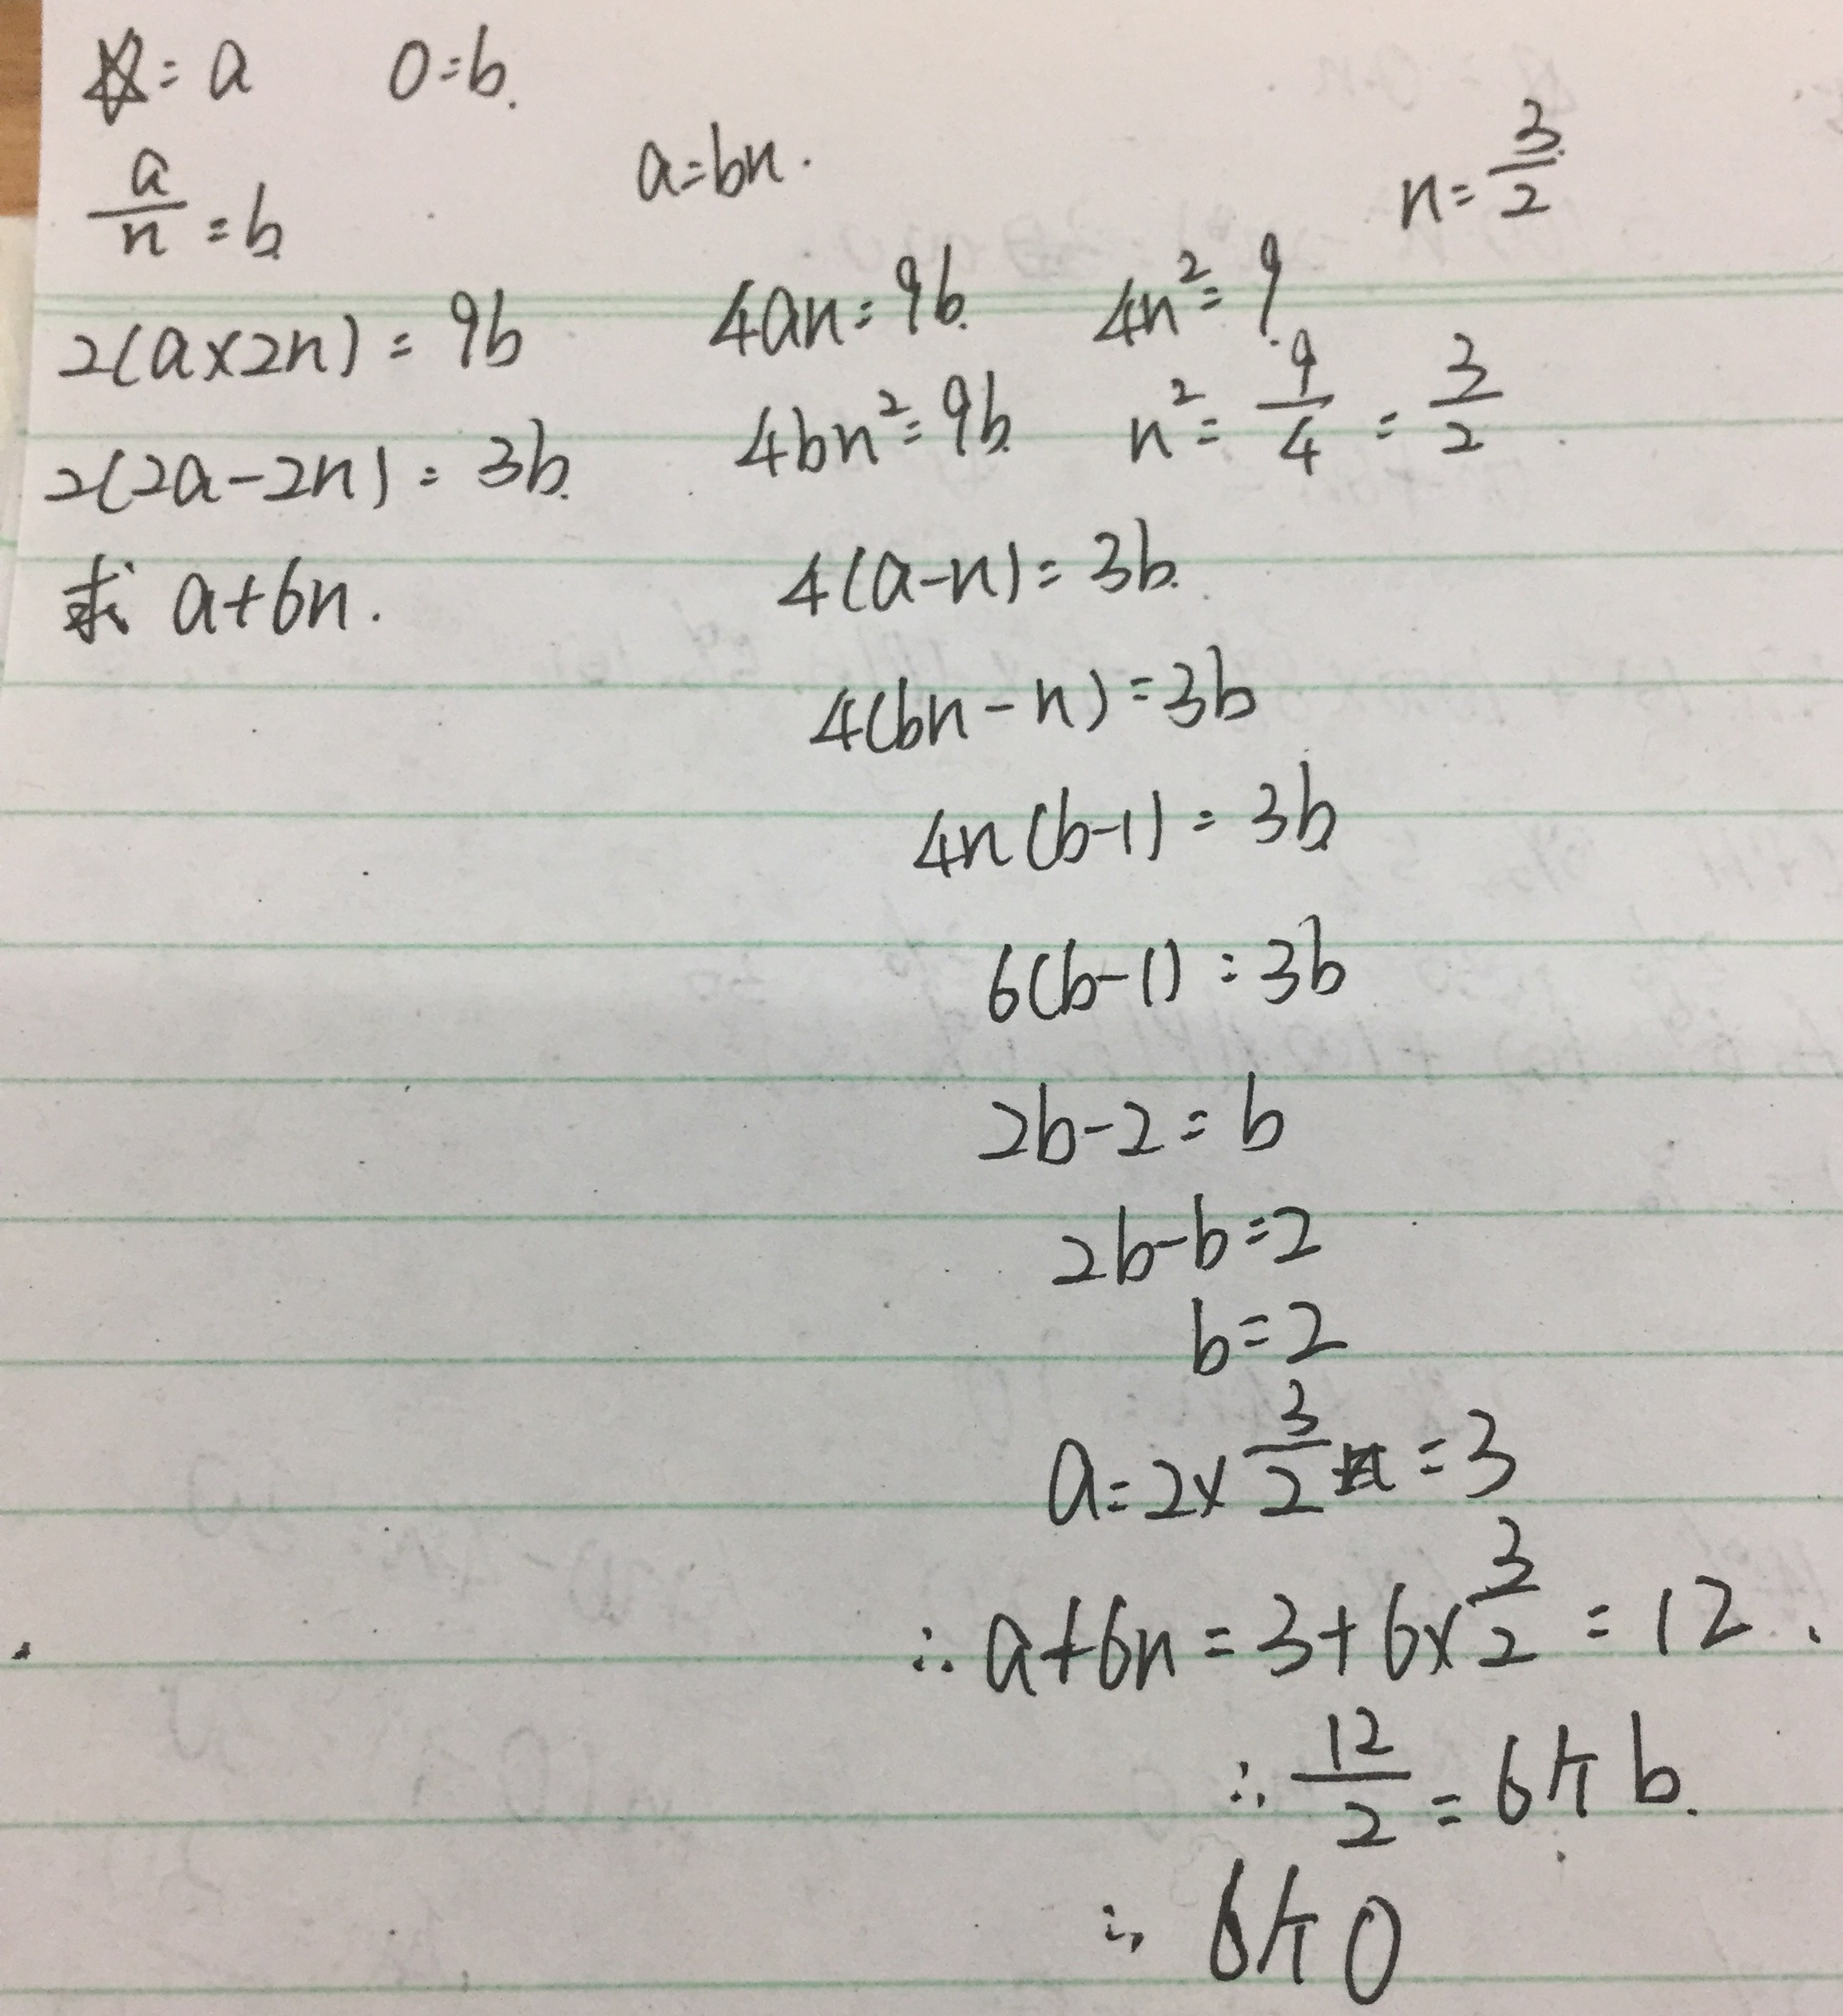 ☆=a 0=b.
a/n=b a=bn. n=3/2
2(a×2n)=9b 4an=9b 4n²=9
2(2a-2n)=3b. 4bn²=9b n²=9/4=3/2
求 a+6n. 4(a-n)=3b.
4(bn-n)=3b
4n(b-1)=3b
6(b-1)=3b
2b-2=b
2b-b=2
b=2
a=2×3/2=3
∴a+6n=3+6×3/2=12.
∴12/2=6个b.
∴6个0